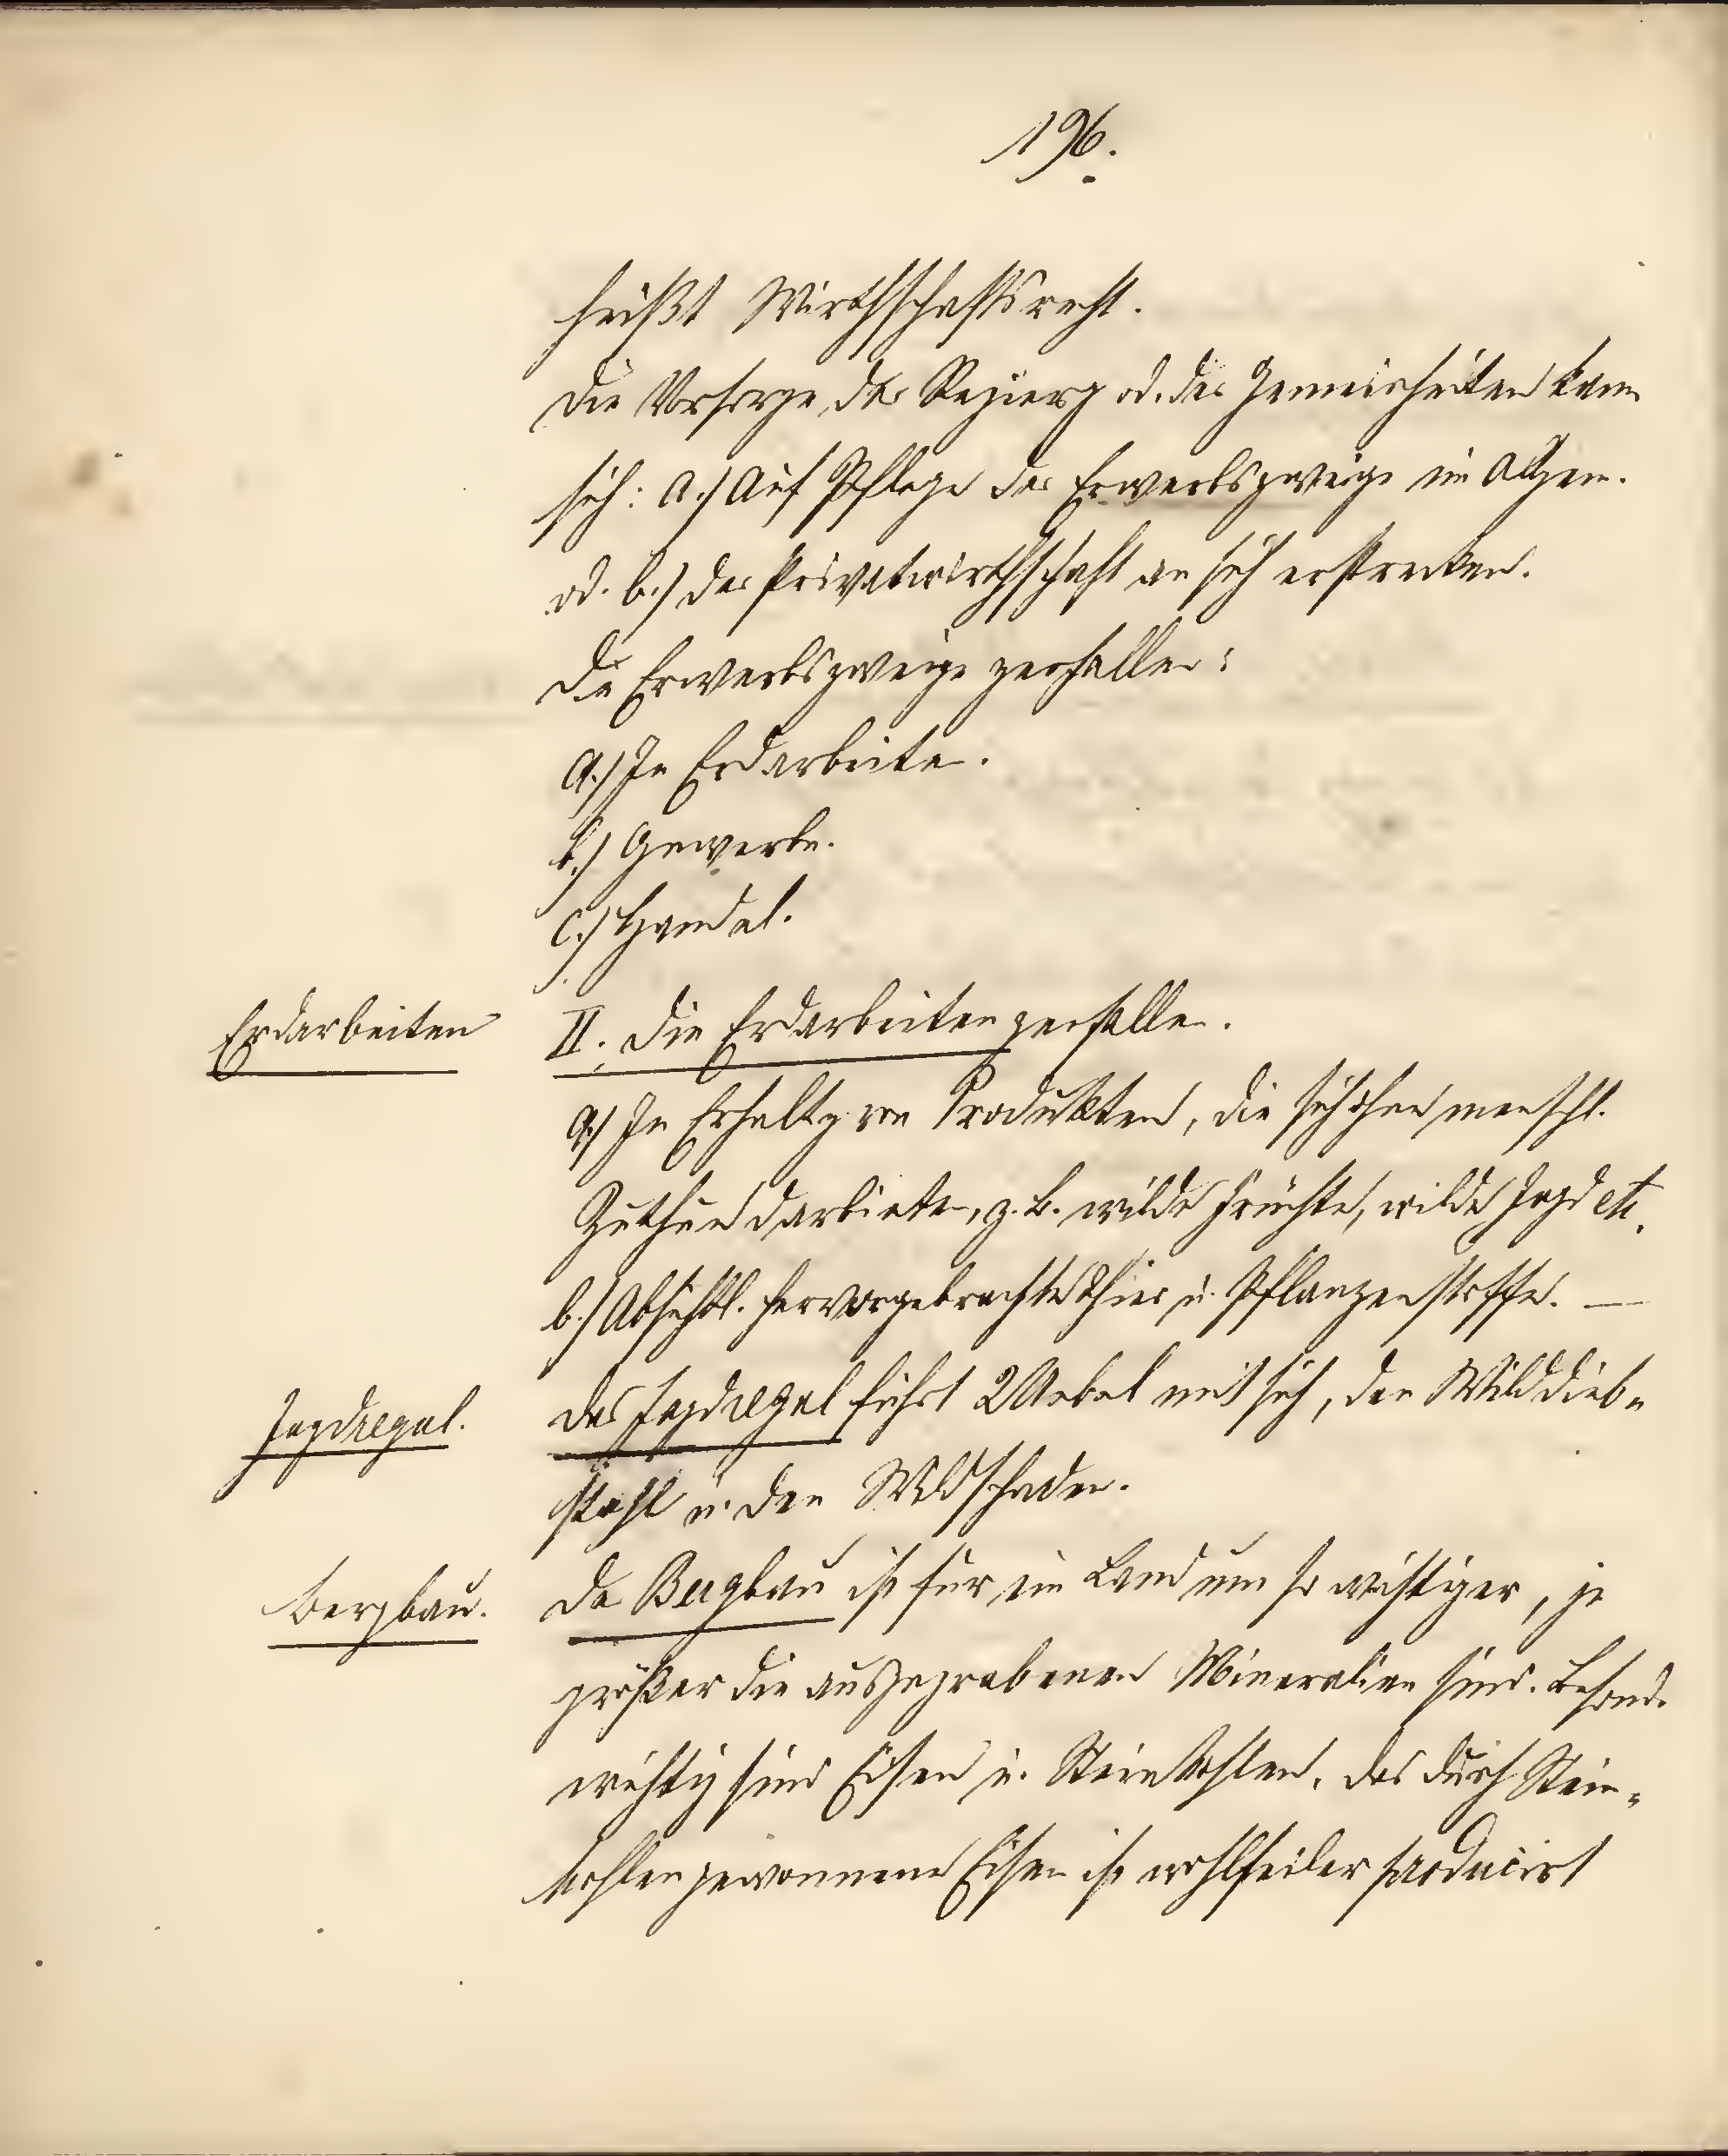 196.
heißt Wirthschaftsrecht.
Die Vorsorge der Regierg od. der Gemeinheiten kann
sich: a.) Auf Pflege der Erwerbszweige im Allgem.
od. b.) der Privatwirthschaft an sich erstrecken.
Die Erwerbszweige zerfallen:
a.) In Erdarbeiten.
b.) Gewerbe.
c.) Handel.
Erdarbeiten
II. Die Erdarbeiten zerfallen.
a.) In Erhaltg von Produkten, die sich ohne menschl.
Zuthun darbieten, z. B. wilde Früchte, wilde Jagd etc.
b.) Absichtl. hervorgebrachte Thier u. Pflanzenstoffe. —
Jagdregal.
Das Jagdregal führt 2 Uebel mit sich, den Wilddieb-
stahl u. den Wildschaden.
Bergbau.
Der Bergbau ist für ein Land um so wichtiger, je
größer die ausgegrabenen Mineralien sind. Besond.
wichtig sind Eisen u. Steinkohlen. Das durch Stein-
kohlen gewonnene Eisen ist wohlfeiler producirt